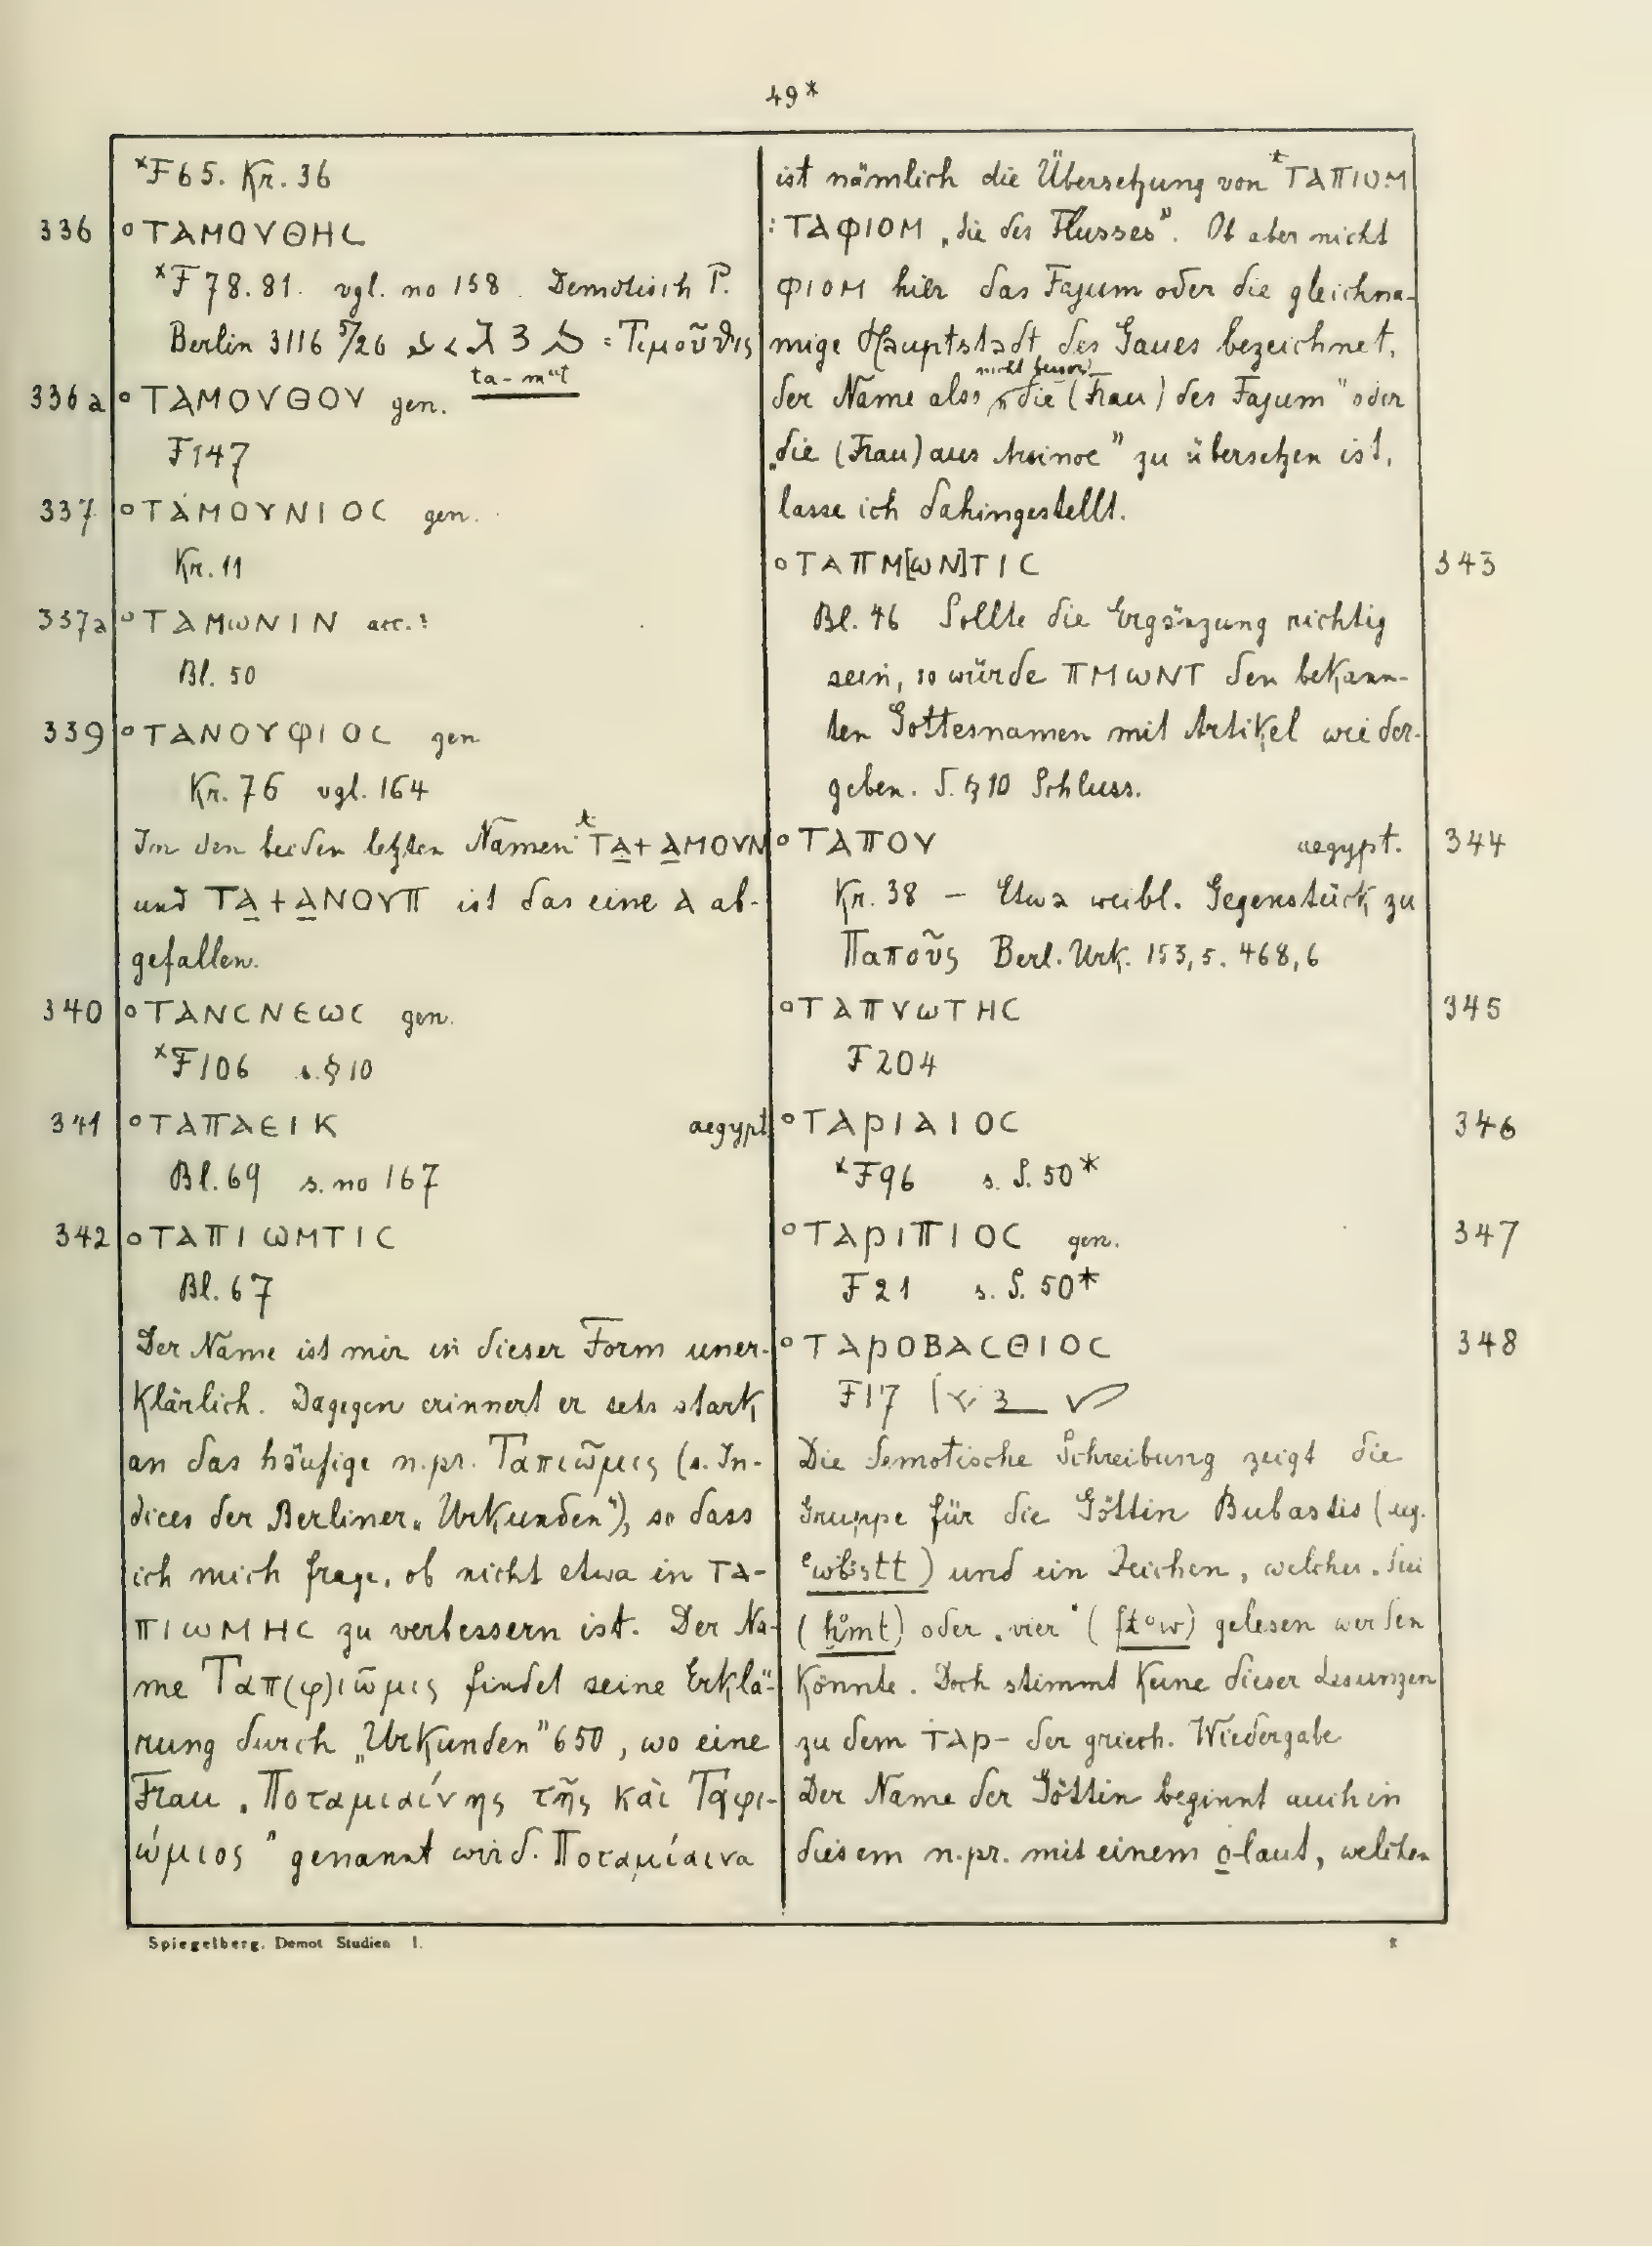 49*
*F65. Kr. 36
336 ∘ΤΑΜΟΥΘΗϹ
*F 78. 81. vgl. no 158. Demotisch P.
Berlin 3116 5/26 = Τιμοῦθις
ta-mwt
336a ∘ΤΑΜΟΥΘΟΥ gen.
F147
337 ∘ΤΑΜΟΥΝΙΟϹ gen.
Kr. 11
337a ∘ΤΑΜωΝΙΝ acc.?
Bl. 50
339 ∘ΤΑΝΟΥΦΙΟϹ gen
Kr. 76 vgl. 164
In den beiden letzten Namen *ΤΑ+ΑΜΟΥΝ
und ΤΑ+ΑΝΟΥΠ ist das eine Α ab-
gefallen.
340 ∘ΤΑΝϹΝΕωϹ gen.
*F106 s. § 10
341 ∘ΤΑΠΑΕΙΚ aegypt.
Bl. 69 s. no 167
342 ∘ΤΑΠΙωΜΤΙϹ
Bl. 67
Der Name ist mir in dieser Form uner-
klärlich. Dagegen erinnert er sehr stark
an das häufige n.pr. Ταπιῶμις (s. In-
dices der Berliner „Urkunden"), so dass
ich mich frage, ob nicht etwa in ΤΑ-
ΠΙωΜΗϹ zu verbessern ist. Der Na-
me Ταπ(φ)ιῶμις findet seine Erklä-
rung durch „Urkunden" 650, wo eine
Frau „Ποταμιαίνης τῆς καὶ Ταφι-
ώμιος" genannt wird. Ποταμίαινα
ist nämlich die Übersetzung von *ΤΑΠΙΟΜ
: ΤΑΦΙΟΜ „die des Flusses". Ob aber nicht
ΦΙΟΜ hier das Fajum oder die gleichna-
mige Hauptstadt des Gaues bezeichnet,
der Name also nicht besser „die (Frau) des Fajum" oder
„die (Frau) aus Arsinoe" zu übersetzen ist,
lasse ich dahingestellt.
∘ΤΑΠΜ[ωΝ]ΤΙϹ 343
Bl. 46 Sollte die Ergänzung richtig
sein, so würde ΠΜωΝΤ den bekann-
ten Gottesnamen mit Artikel wieder-
geben. S. § 10 Schluss.
∘ΤΑΠΟΥ aegypt. 344
Kr. 38 – Etwa weibl. Gegenstück zu
Παποῦς Berl. Urk. 153,5. 468,6
∘ΤΑΠΥωΤΗϹ 345
F204
∘ΤΑΡΙΑΙΟϹ 346
*F96 s. S. 50*
∘ΤΑΡΙΠΙΟϹ gen. 347
F21 s. S. 50*
∘ΤΑΡΟΒΑϹΘΙΟϹ 348
F17
Die demotische Schreibung zeigt die
Gruppe für die Göttin Bubastis (eig.
) und ein Zeichen, welches „drei
(ḫmt) oder „vier" ( ) gelesen werden
könnte. Doch stimmt keine dieser Lesungen
zu dem ΤΑΡ- der griech. Wiedergabe
Der Name der Göttin beginnt auch in
diesem n.pr. mit einem o-laut, welchen
Spiegelberg, Demot Studien I.